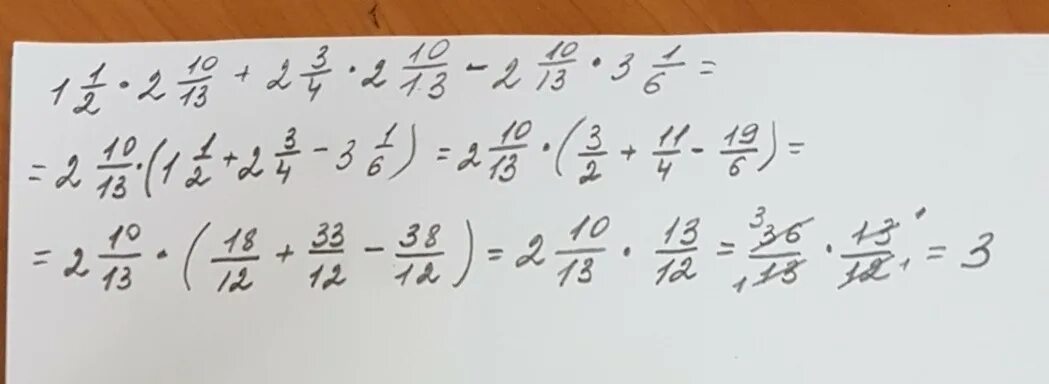 1 1/2 · 2 10/13 + 2 3/4 · 2 10/13 - 2 10/13 · 3 1/6 =
= 2 10/13 · (1 1/2 + 2 3/4 - 3 1/6) = 2 10/13 · (3/2 + 11/4 - 19/6) =
= 2 10/13 · (18/12 + 33/12 - 38/12) = 2 10/13 · 13/12 = 3 36/13 1 · 13/12 1 = 3